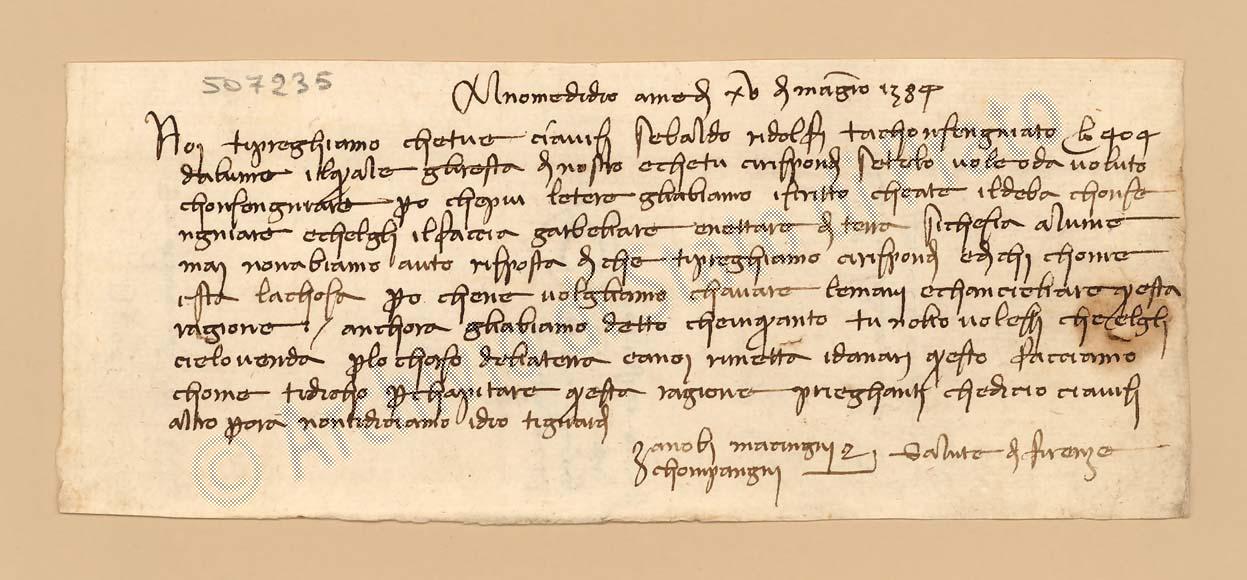 507235
Al nome di dio ame di xv di magio 1384
Noi ti preghiamo che tu e ci avisi se baldo ridolfi ta chonsengniato lb 404
dalume il quale gli resta di nostro e che tu ci rispondi se te lo vole o da voluto
chonsengniare pero che piu letere gli abiamo iscritto che a te il deba chonse
ngniare e che lgli il faccia garbellare e nettare di terra si che sia alume
mai non abiamo auto risposta di che ti preghiamo ci rispondi e di chi chome
ista la chosa pero che ne volgliamo chavare le mani e chanciellare questa
ragione / anchora gli abiamo detto che in quanto tu nollo volessi che elgli
cie lo venda per lo chorso della terra e a noi rimetta i danari questo facciamo
chome ti dicho per chapitare questa ragione prieghanti che di cio ci avisi
altro per ora non ti diciamo idio ti guardi
zanobi macingni e
chompangni Salute di firenze
© Archivio di Stato di Prato